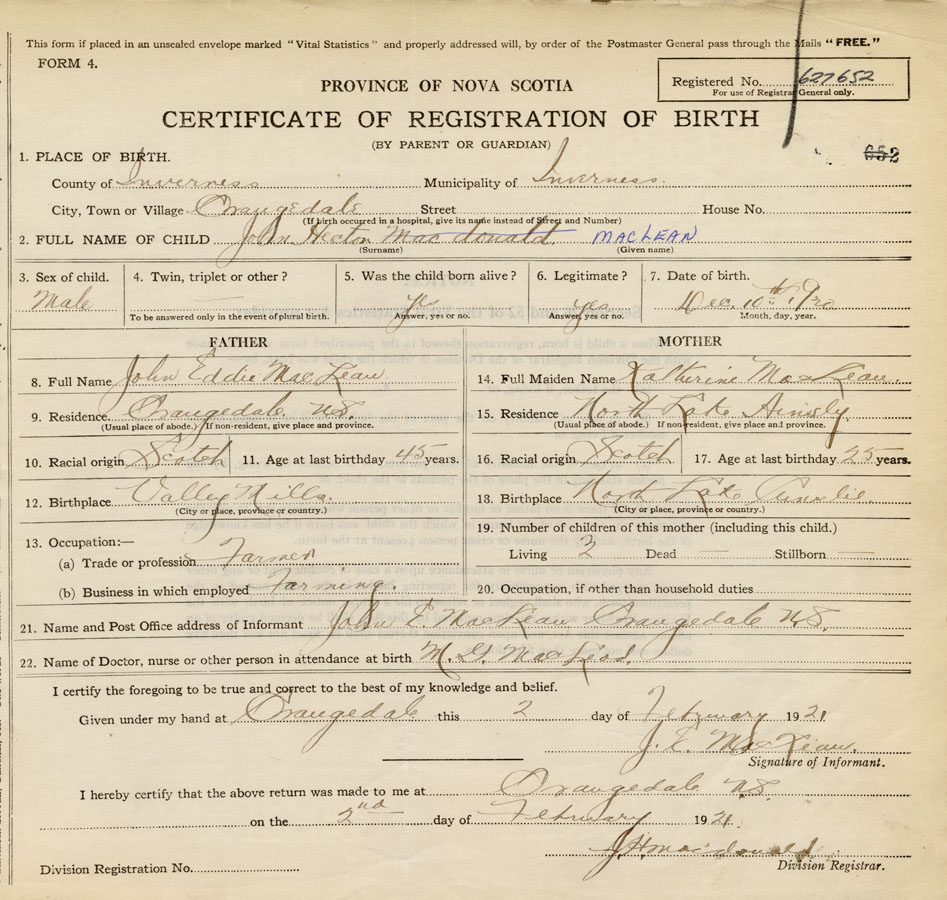 This form if placed in an unsealed envelope marked "Vital Statistics" and properly addressed will, by order of the Postmaster General pass through the Mails "FREE."
FORM 4.
PROVINCE OF NOVA SCOTIA
Registered No. 627652
For use of Registrar General only.
CERTIFICATE OF REGISTRATION OF BIRTH
(BY PARENT OR GUARDIAN)
652
1. PLACE OF BIRTH.
County of Inverness Municipality of Inverness.
City, Town or Village Orangedale Street House No.
(If birth occurred in a hospital, give its name instead of Street and Number)
2. FULL NAME OF CHILD John Hector Mac donald. MACLEAN
(Surname) (Given name)
3. Sex of child. 4. Twin, triplet or other? 5. Was the child born alive? 6. Legitimate? 7. Date of birth.
Male — yes yes Dec. 10th 1920
To be answered only in the event of plural birth. Answer, yes or no. Answer, yes or no. Month, day, year.
FATHER
8. Full Name John Eddie MacLean
9. Residence. Orangedale. N.S.
(Usual place of abode.) If non-resident, give place and province.
10. Racial origin Scotch 11. Age at last birthday 45 years.
12. Birthplace Valley Mills.
(City or place, province or country.)
13. Occupation:—
(a) Trade or profession Farmer
(b) Business in which employed Farming.
MOTHER
14. Full Maiden Name Katherine MacLean.
15. Residence North Lake Ainsly
(Usual place of abode.) If non-resident, give place and province.
16. Racial origin Scotch 17. Age at last birthday 25 years.
18. Birthplace North Lake Ainslie.
(City or place, province or country.)
19. Number of children of this mother (including this child.)
Living 2 Dead — Stillborn —
20. Occupation, if other than household duties
21. Name and Post Office address of Informant John E. MacLean Orangedale N.S.
22. Name of Doctor, nurse or other person in attendance at birth M. G. MacLeod.
I certify the foregoing to be true and correct to the best of my knowledge and belief.
Given under my hand at Orangedale this 2 day of February 1921
J. E. MacLean.
Signature of Informant.
I hereby certify that the above return was made to me at Orangedale N.S.
on the 2nd day of February 1921.
J H macdonald
Division Registration No. Division Registrar.